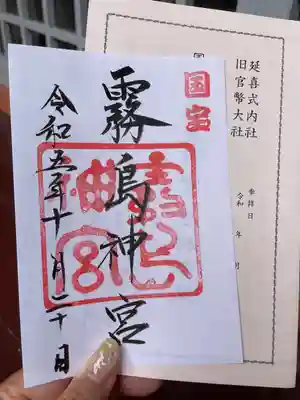 国宝
霧島神宮
令和五年十一月二十日
延喜式内社
旧官幣大社
奉拝日
令和
年
月